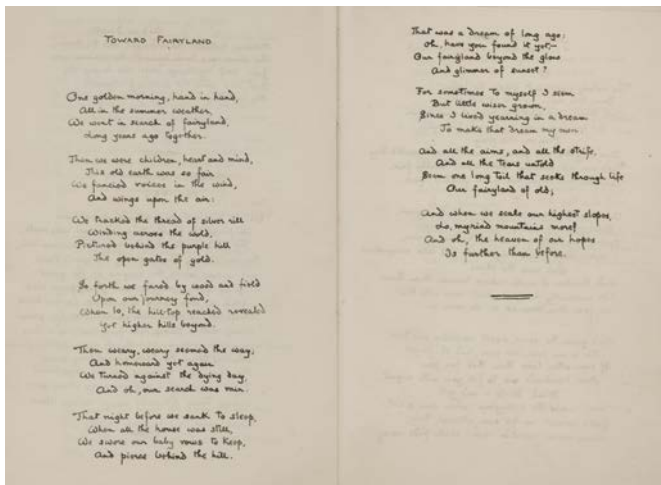 TOWARD FAIRYLAND
One golden morning, hand in hand,
All in the summer weather,
We went in search of fairyland,
Long years ago together.
Then we were children, heart and mind,
This old earth was so fair
We fancied voices in the wind,
And wings upon the air:
We tracked the thread of silver rill
Winding across the wold,
Pictured behind the purple hill
The open gates of gold.
So forth we fared by wood and field
Upon our journey fond,
When lo, the hill-top reached revealed
Yet higher hills beyond.
Then weary, weary seemed the way;
And homeward yet again
We turned against the dying day,
And oh, our search was vain.
That night before we sank to sleep,
When all the house was still,
We swore our baby vows to keep,
And pierce behind the hill.
That was a dream of long ago;
Oh, have you found it yet,—
Our fairyland beyond the glow
And glimmer of sunset?
For sometimes to myself I seem
But little wiser grown,
Since I lived yearning in a dream
To make that dream my own
And all the aims, and all the strife,
And all the tears untold
Seem one long toil that seeks through life
Our fairyland of old;
And when we scale our highest slopes,
Lo, myriad mountains more!
And oh, the heaven of our hopes
Is further than before.